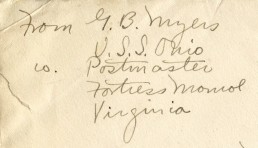 From G. B. Myers
U. S. S. Ohio
co. Postmaster
Fortress Monroe
Virginia